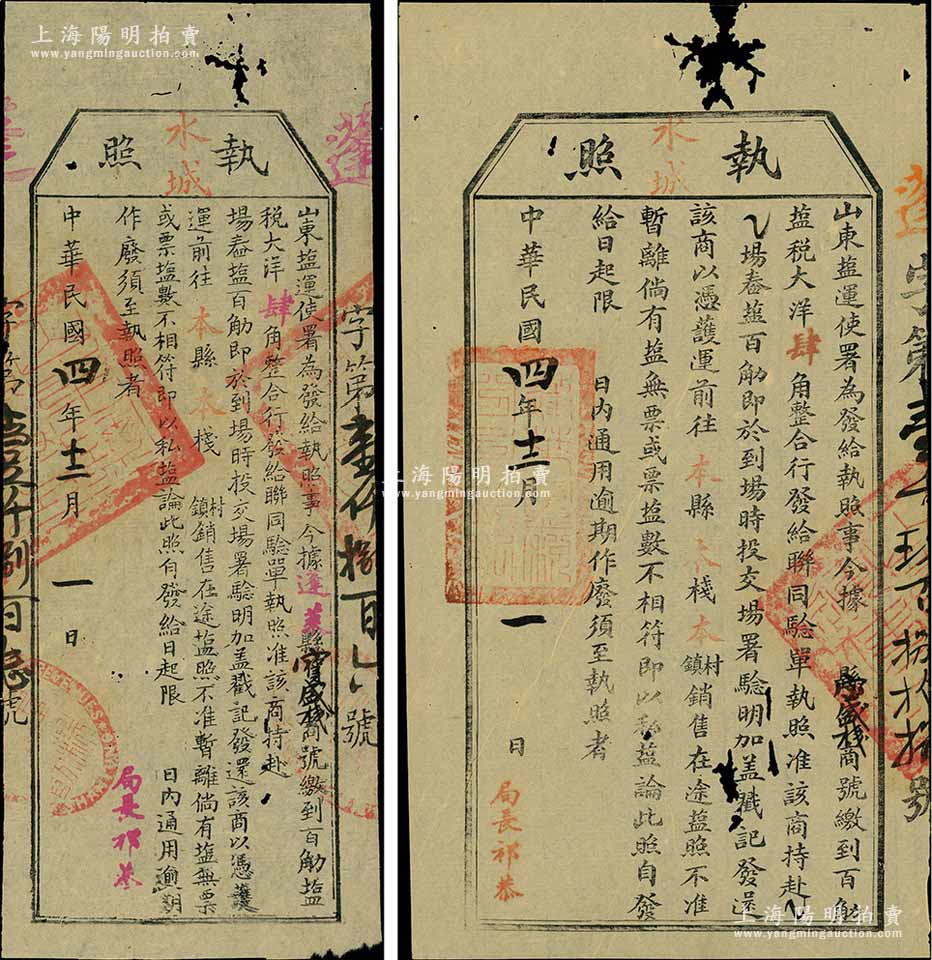 上海陽明拍賣
www.yangmingauction.com
執照
水城
山東盐運使署為發給執照事今據蓬萊縣寶盛棧商號繳到百觔盐
税大洋肆角整合行發給聯同驗單執照准該商持赴
場春盐百觔即於到場時投交場署驗明加盖戳記發還該商以憑護
運前往本縣本棧村鎮銷售在途盐照不准暫離倘有盐無票
或票盐數不相符即以私盐論此照自發給日起限 日内通用逾期
作廢須至執照者
中華民國四年十二月一日
局長祁恭
字第壹仟捌百 號
蓬
上海陽明拍賣
www.yangmingauction.com
執照
水城
山東盐運使署為發給執照事今據 縣盛棧商號繳到百觔
盐税大洋肆角整合行發給聯同驗單執照准該商持赴
場春盐百觔即於到場時投交場署驗明加盖戳記發還
該商以憑護運前往本縣本棧本村鎮銷售在途盐照不准
暫離倘有盐無票或票盐數不相符即以私盐論此照自發
給日起限 日内通用逾期作廢須至執照者
中華民國四年十二月一日
局長祁恭
蓬
字第壹
號
上海陽明拍賣
www.yangmingauction.com
上海陽明拍賣
www.yangmingauction.com